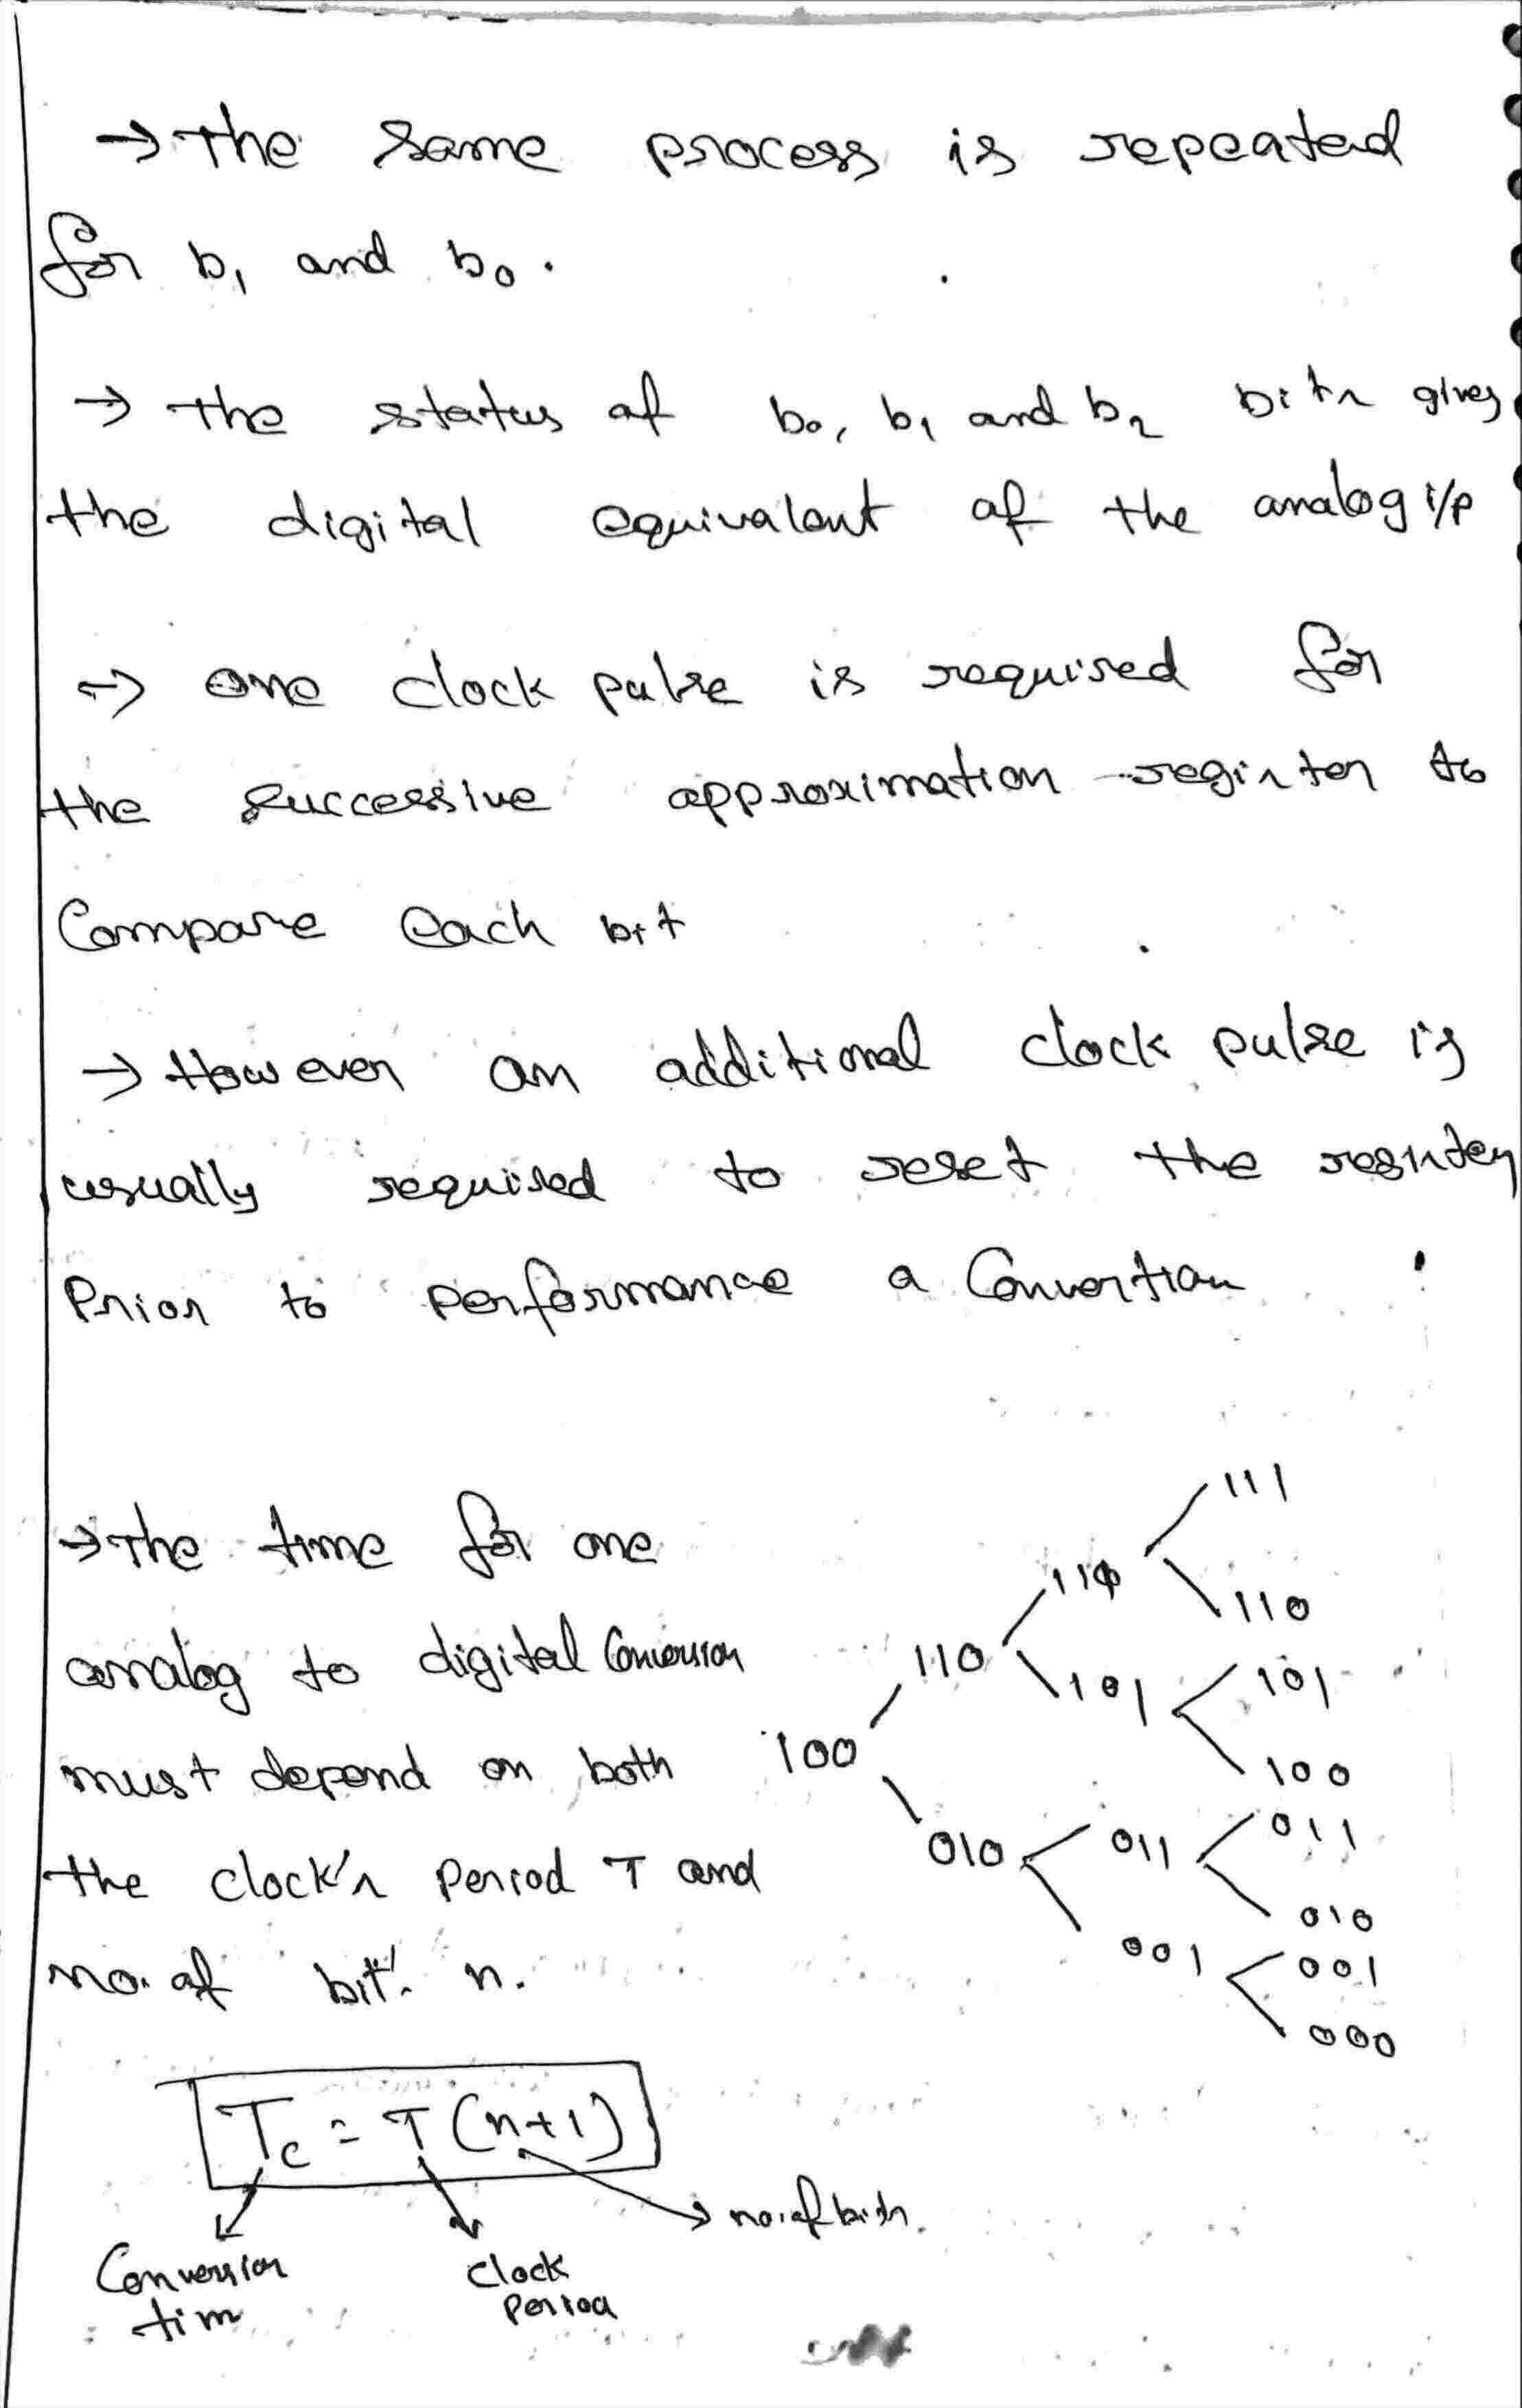 → The same process is repeated
for b1 and b0.
→ The status of b0, b1 and b2 bits gives
the digital equivalent of the analog i/p
→ one clock pulse is required for
the successive approximation register to
Compare each bit
→ However an additional clock pulse is
usually required to reset the register
Prior to performance a Convertion
→ The time for one
analog to digital Conversion
must depend on both
the clock's period T and
no. of bit's n.
111
110
110
110
101
101
100
100
010
011
011
010
001
001
000
Tc = T (n+1)
no. of bits.
Conversion
tim
clock
period